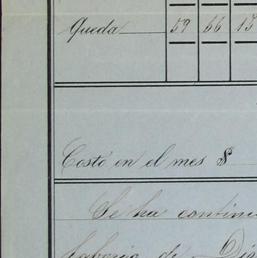 Queda 59 66 13
Costó en el mes $
Se ha continu
laborio de Dio